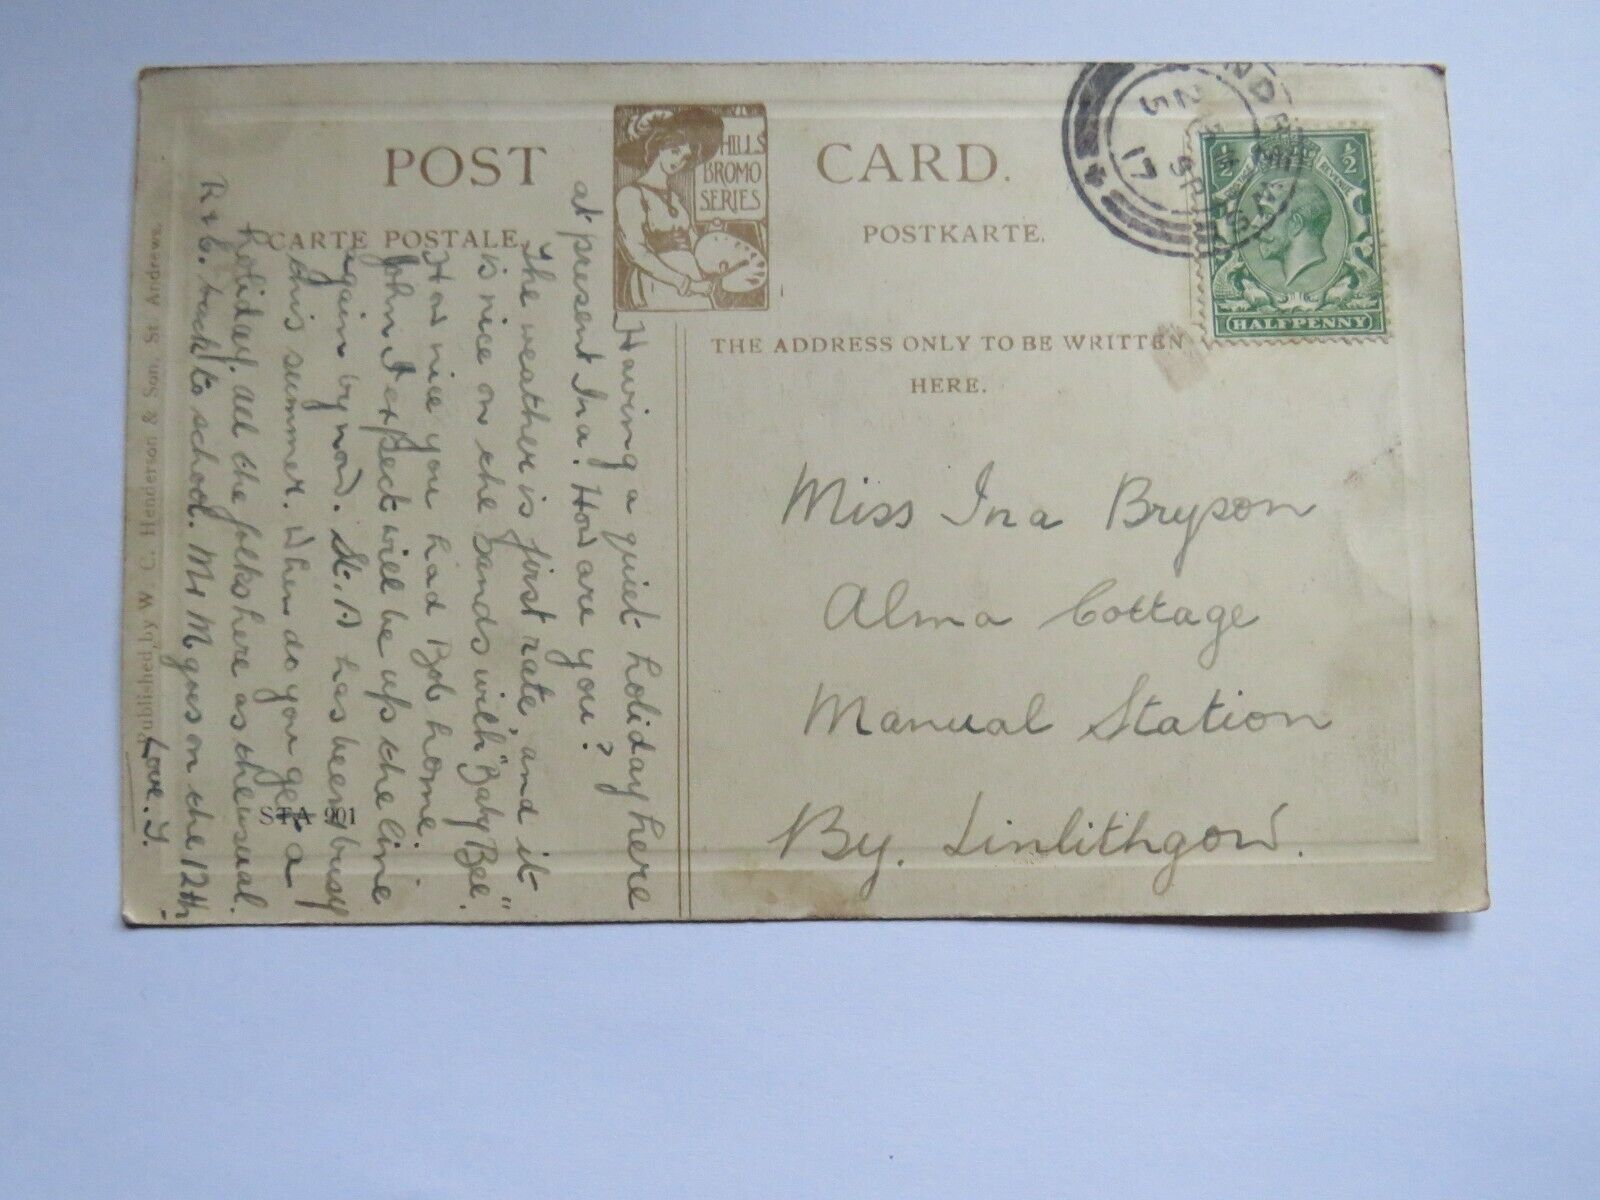 POST CARD.
HILLS
BROMO
SERIES
CARTE POSTALE.
POSTKARTE.
THE ADDRESS ONLY TO BE WRITTEN
HERE.
½ ½
REVENUE
HALFPENNY
25
17
Miss Ina Bryson
Alma Cottage
Manual Station
By. Linlithgow.
Having a quiet holiday here
at present Ina. How are you?
The weather is first rate, and it
is nice on the Sands with "Baby Bee."
How nice you had Bob home.
John I expect will be up the line
again by now. St. A has been busy
this summer. When do you get a
holiday. all the folks here as the usual.
R & C. back to school. Mr M goes on the 12th
Love. J.
STA 901
Published by W. C. Henderson & Son, St. Andrews.